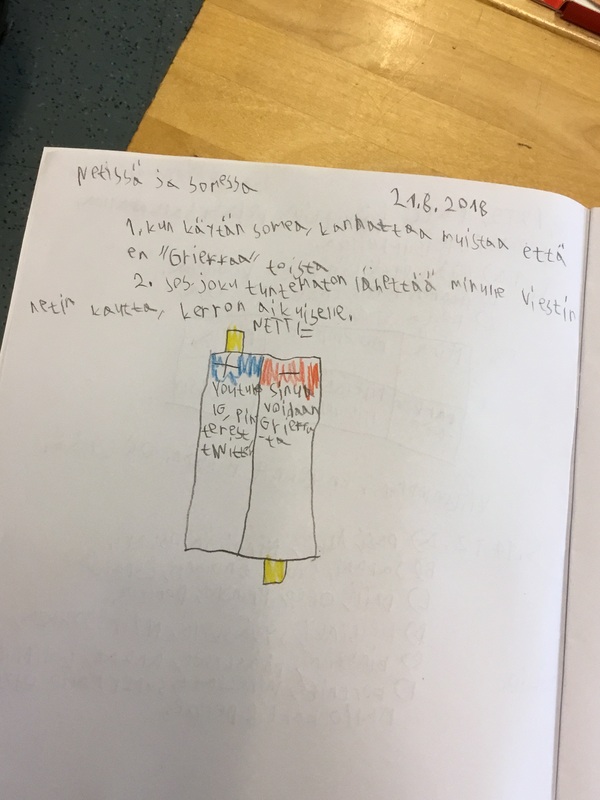 Netissä ja somessa
21.8.2018
1. kun käytän somea, kanhattaa muistaa että
en "Griekkaa" toista
2. Jos joku tuntematon lähettää minulle viestin
netin kautta, kerron aikuiselle.
NETTI=
+ −
Youtube
IG, Pin
terest
twitter
sinua
voidaan
Griekka
-ta